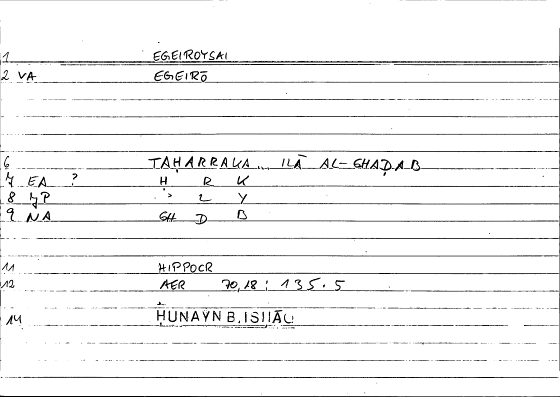 1 EGEIROYSAI
2 VA EGEIRŌ
6 TAḤARRAKA .. ILĀ AL-GHAḌAB
7 EA ? Ḥ R K
8 JP ʾ L Y
9 NA GH Ḍ B
11 HIPPOCR
12 AER 70,18 : 135.5
14 ḤUNAYN B. ISḤĀQ